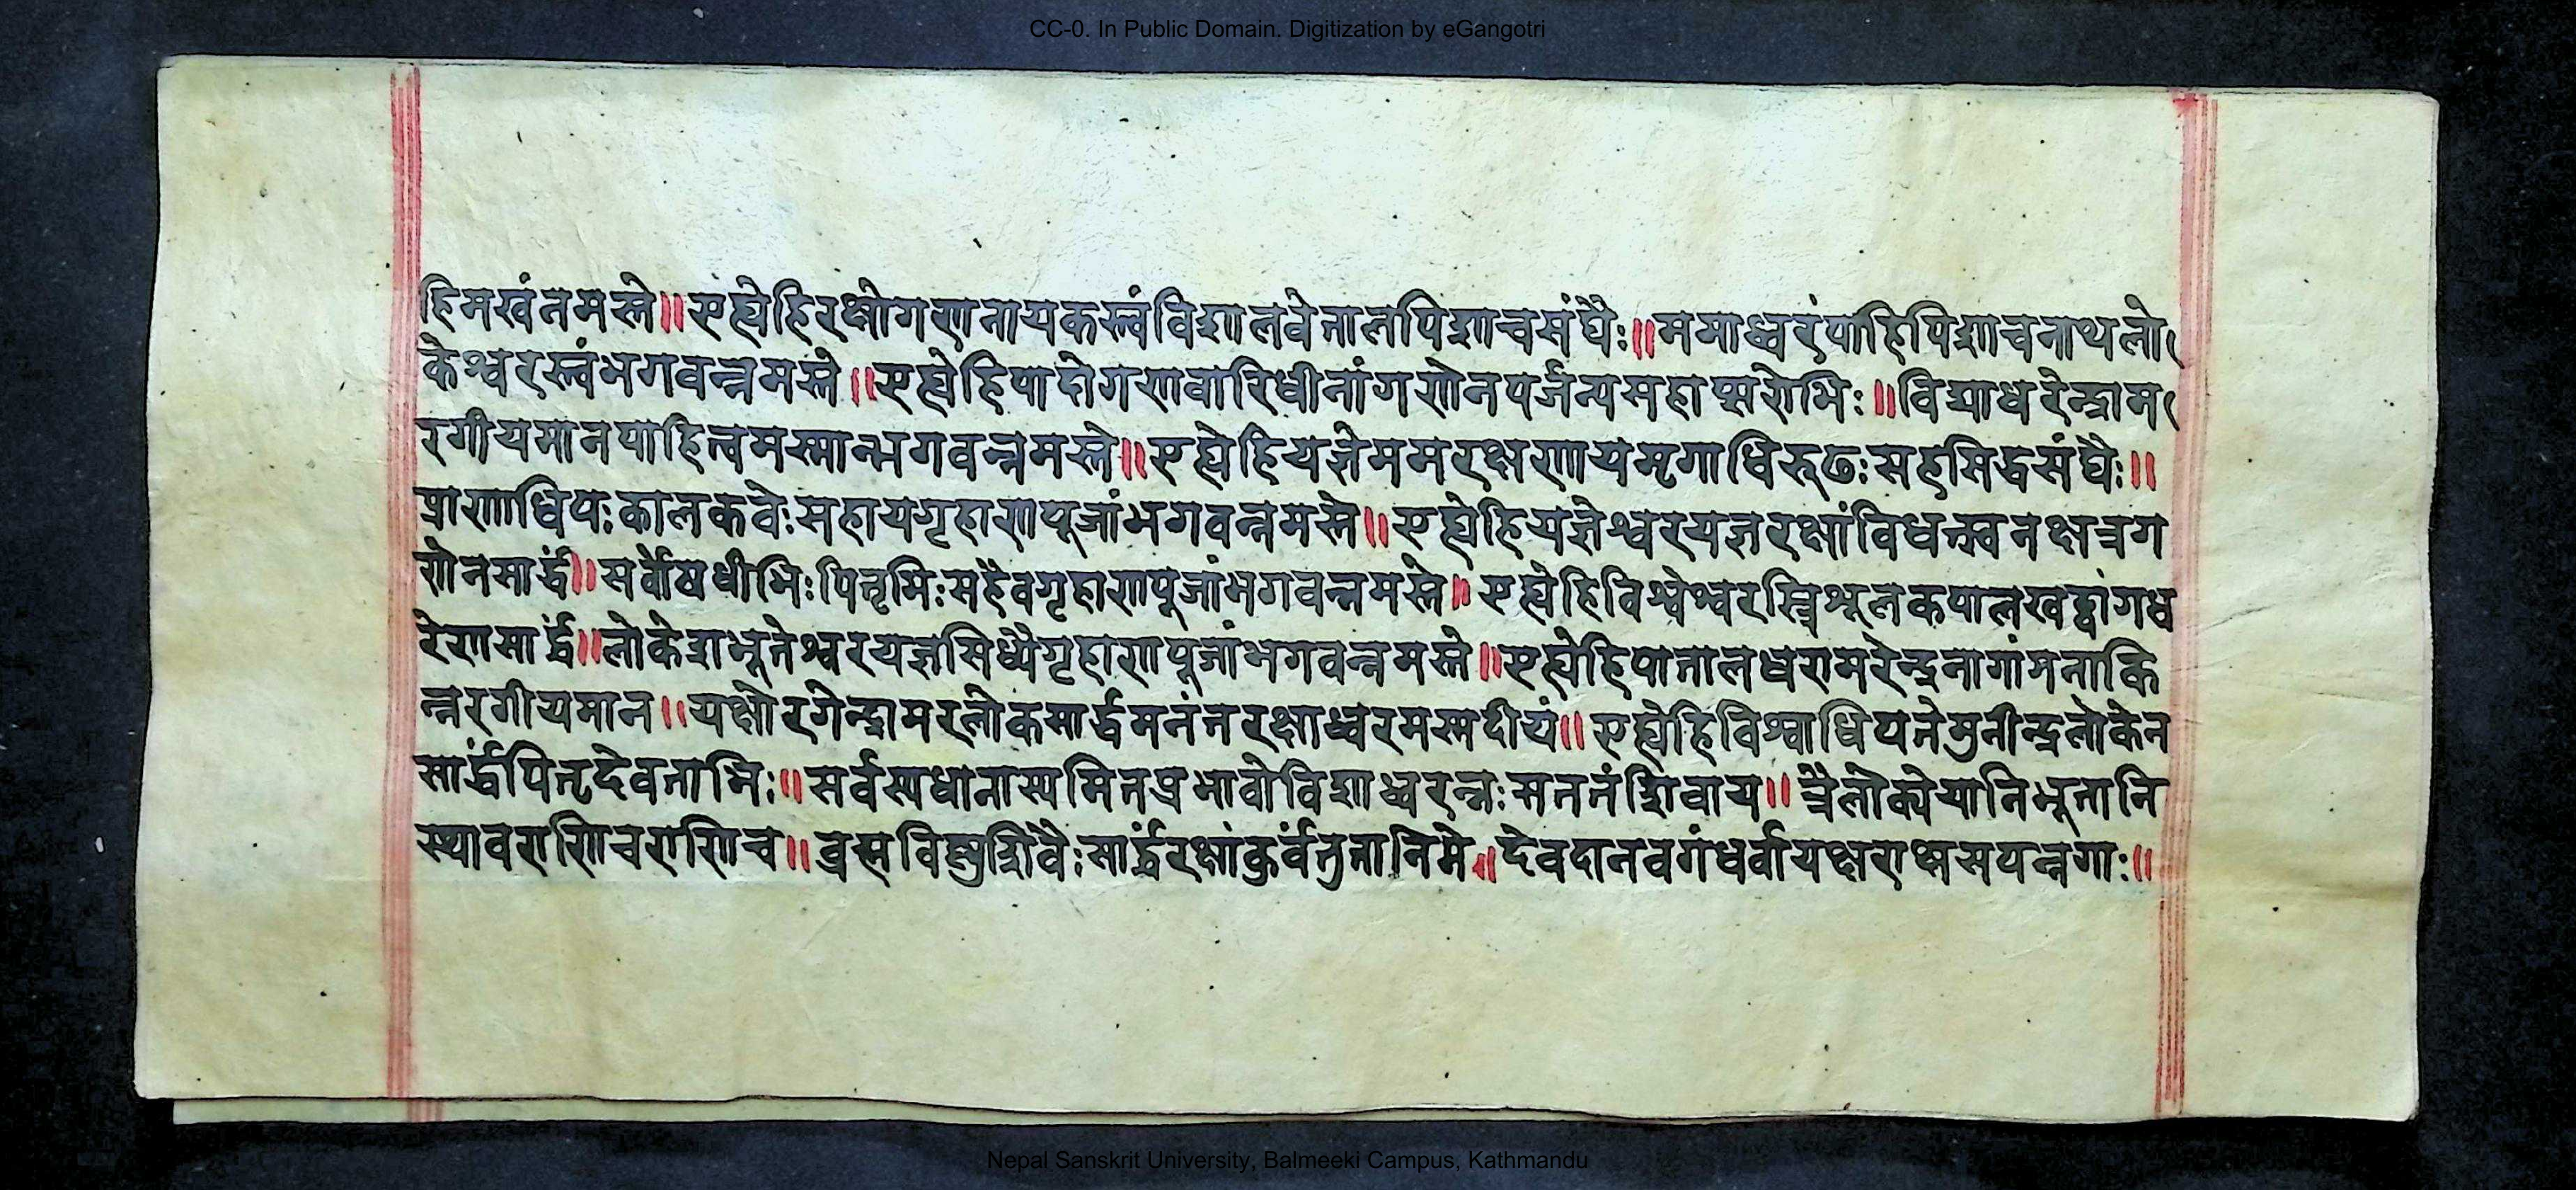 CC-0. In Public Domain. Digitization by eGangotri
हिमखंनमस्ते॥एह्येहिरक्षोगणनायकस्त्वंविशालवेतालपिशाचसंघैः॥ममाध्वरंपाहिपिशाचनाथलो
केश्वरस्त्वंभगवन्नमस्ते॥एह्येहिपादोगणवारिधीनांगणेनपर्जन्यमहाप्सरोभिः॥विद्याधरेन्द्राम
रगीयमानपाहित्वमस्मान्भगवन्नमस्ते॥एह्येहियज्ञेममरक्षणायमृगाधिरूढः सहसिद्धसंघैः॥
प्राणाधिपः कालकवेः सहायगृहाणपूजांभगवन्नमस्ते॥एह्येहियज्ञेश्वरयज्ञरक्षांविधत्स्वनक्षत्रग
णेनसार्द्धं॥सर्वोषधीभिः पितृभिः सहैवगृहाणपूजांभगवन्नमस्ते॥एह्येहिविश्वेश्वरस्त्रिशूलकपालखट्वांगध
रेणसार्द्धं॥लोकेशभूतेश्वरयज्ञसिध्यैगृहाणपूजांभगवन्नमस्ते॥एह्येहिपातालधरामरेन्द्रनागांगनाकि
न्नरगीयमान॥यक्षोरगेन्द्रामरलोकसार्द्धमनंतरक्षाध्वरमस्मदीयं॥एह्येहिविश्वाधिपतेमुनीन्द्रलोकेन
सार्द्धंपितृदेवताभिः॥सर्वस्यधातास्यमितप्रभावोविशाध्वरन्नः सततंशिवाय॥त्रैलोक्येयानिभूतानि
स्थावराणिचराणिच॥ब्रह्मविष्णुशिवैः सार्द्धंरक्षांकुर्वंतुतानिमे॥देवदानवगंधर्वायक्षराक्षसपन्नगाः॥
Nepal Sanskrit University, Balmeeki Campus, Kathmandu